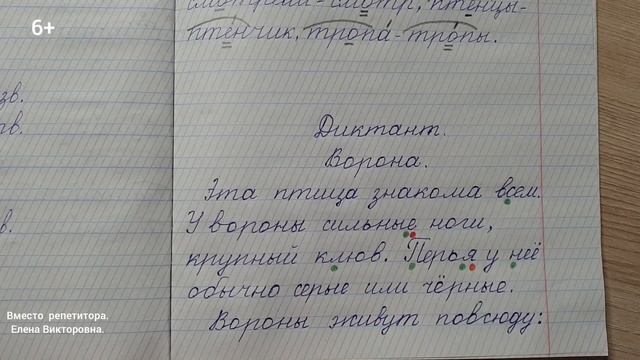 6+
зв.
тв.
в.
смотрели - смотр, птенцы-
птенчик, тропа́ - тро́пы.
Диктант.
Ворона.
Эта птица знакома всем.
У вороны сильные ноги,
крупный клюв. Перья у неё
обычно серые или чёрные.
Вороны живут повсюду:
Вместо репетитора.
Елена Викторовна.